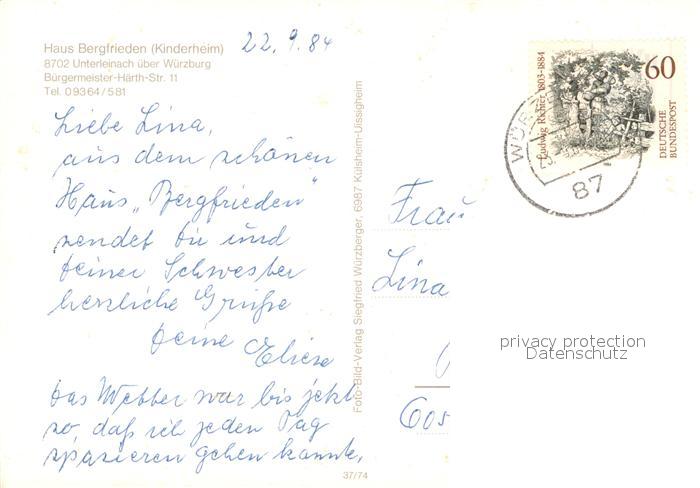 Haus Bergfrieden (Kinderheim)
8702 Unterleinach über Würzburg
Bürgermeister-Härth-Str. 11
Tel. 09364/581
22. 9. 84
Liebe Lina,
aus dem schönen
Haus „Bergfrieden"
sendet Dir und
Deiner Schwester
herzliche Grüße
Deine Eliese
Das Wetter war bis jetzt
so, daß ich jeden Tag
spazieren gehen konnte.
Foto-Bild-Verlag Siegfried Würzberger, 6987 Külsheim-Uissigheim
37/74
Ludwig Richter 1803-1884
60
DEUTSCHE
BUNDESPOST
87
Frau
Lina
privacy protection
Datenschutz